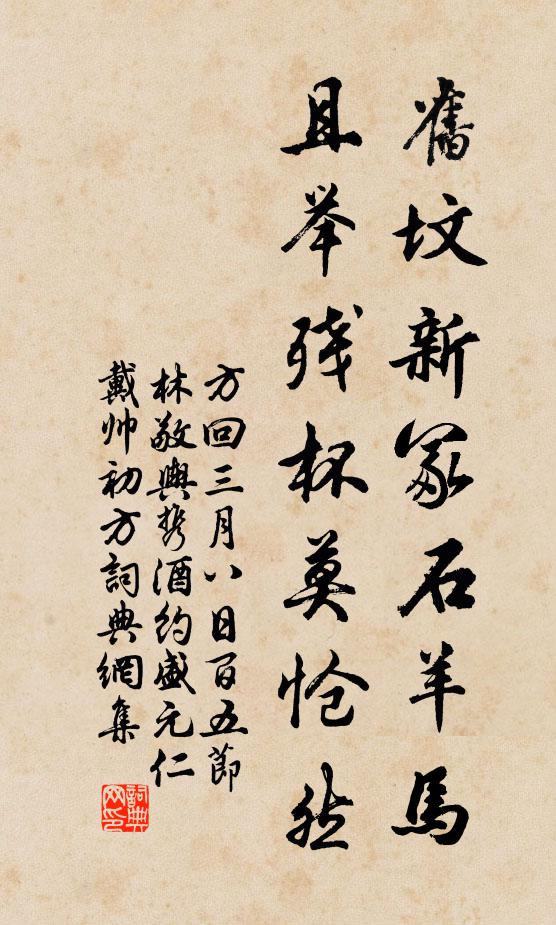 舊坟新冢石羊馬
且举残杯莫怆然
方回三月八日百五節
林敬輿携酒約盛元仁
戴帅初方詞典網集
詞典网印